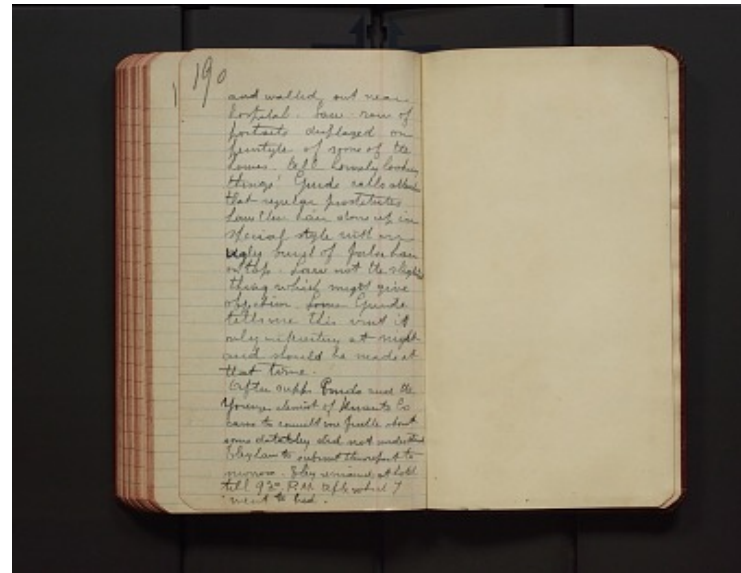 190
and walked out near
hospital. Saw row of
portraits displayed on
frontstyle of some of the
houses. All homely looking
things! Guide calls attention
that regular prostitutes
have their hair done up in
special style with an
ugly bunch of false hair
on top. Saw not the slightest
thing which might give
objection. Some Guide
tells me this visit is
only interesting at night
and should be made at
that time.
After supper Endo and the
Younger chemist of Co
came to consult me further about
some data they did not understand
They have to submit the report to
morrow. They remained at hotel
till 9 30 P.M. after which I
went to bed.